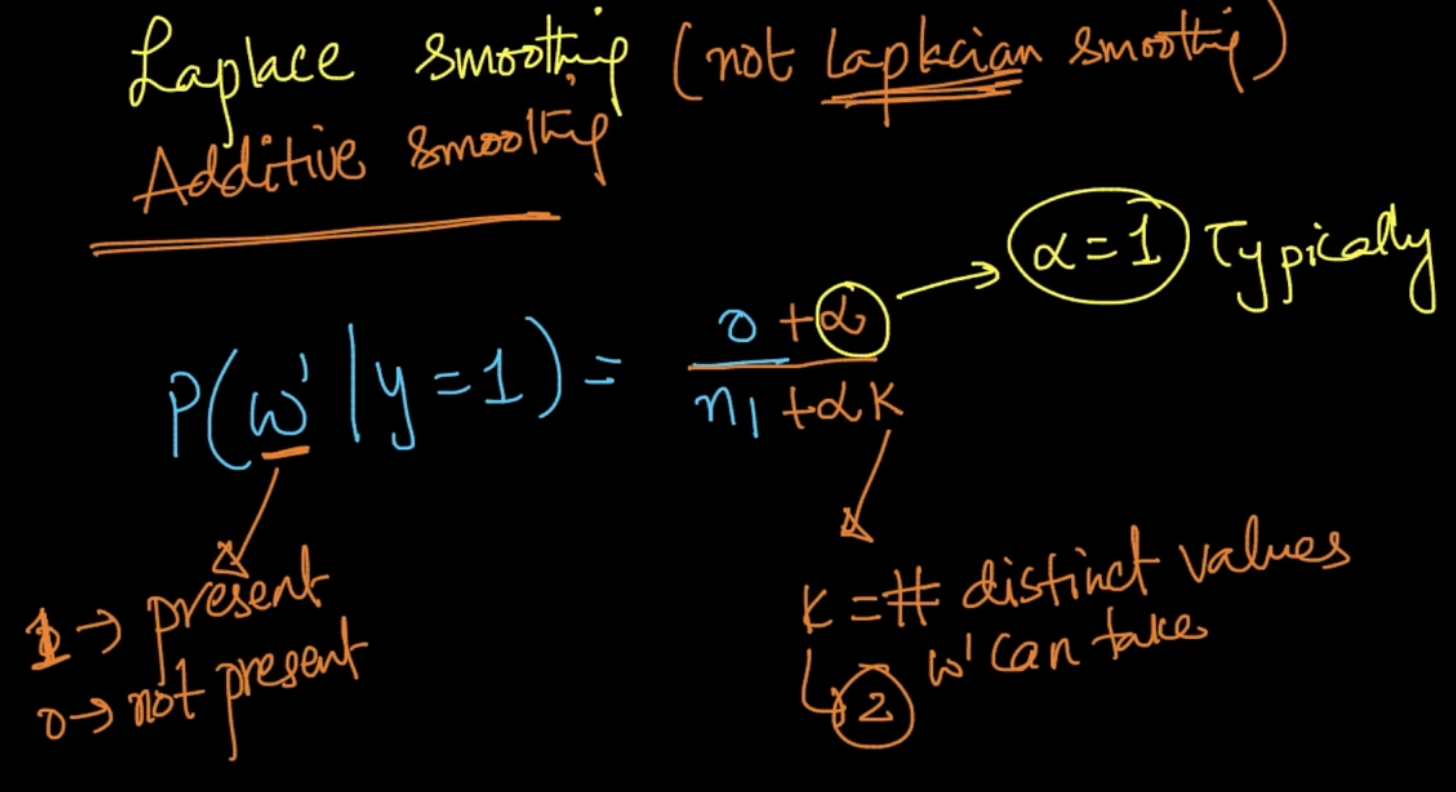 Laplace smoothing (not Laplacian smoothing)
Additive smoothing
α=1 Typically
P(w'|y=1) = 0+α / n1+αK
1→ present
0→ not present
K=# distinct values
w' can take
2